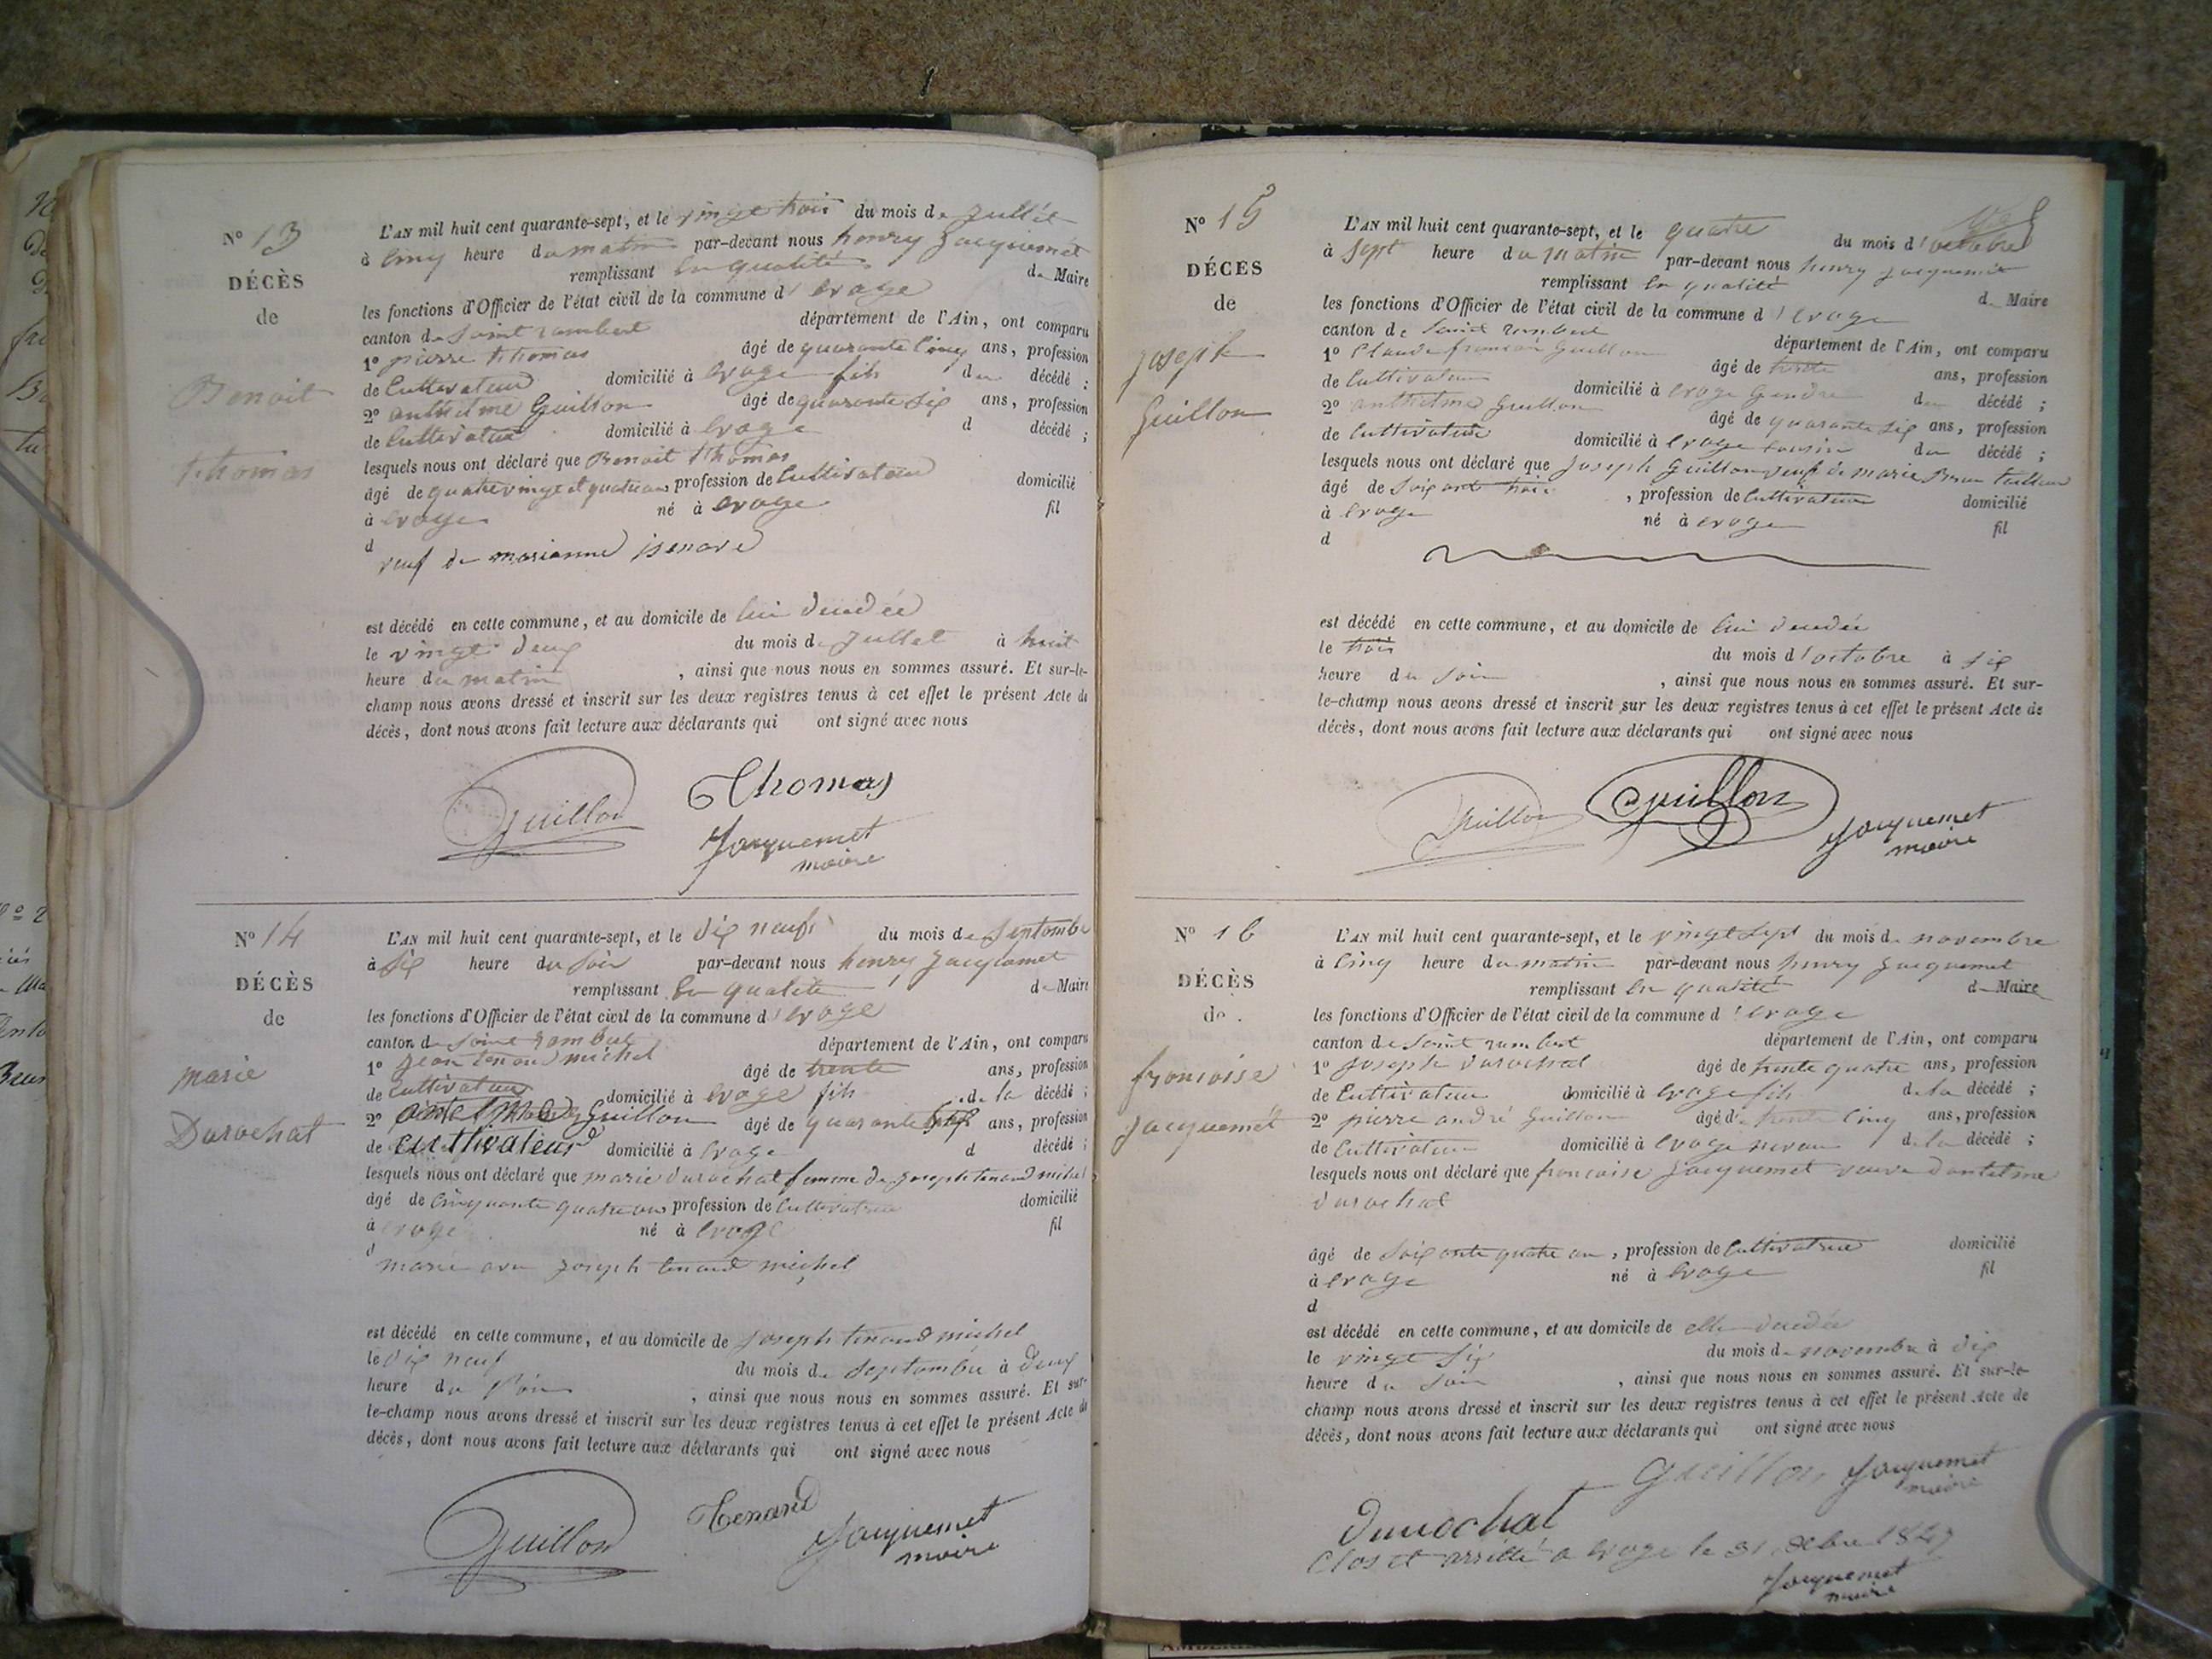 N° 13
DÉCÈS
de
Benoit
thomas
L'AN mil huit cent quarante-sept, et le vingt trois du mois de Jullet
à cinq heure du matin par-devant nous henry Jacquemet
remplissant en qualité de Maire
les fonctions d'Officier de l'état civil de la commune d'evoge
canton de saint rambert département de l'Ain, ont comparu
1° pierre thomas âgé de quarante cinq ans, profession
de Cultivateur domicilié à evoge fils du décédé ;
2° anthelme Guillon âgé de quarante six ans, profession
de Cultivateur domicilié à evoge d décédé ;
lesquels nous ont déclaré que Benoit thomas
âgé de quatrevingt et quatre ans, profession de Cultivateur domicilié
à evoge né à evoge fil
d veuf de marianne
est décédé en cette commune, et au domicile de lui
le vingt deux du mois de Jullet à huit
heure du matin, ainsi que nous nous en sommes assuré. Et sur-le-
champ nous avons dressé et inscrit sur les deux registres tenus à cet effet le présent Acte de
décès, dont nous avons fait lecture aux déclarants qui ont signé avec nous
Guillon Thomas
Jacquemet
maire
N° 14
DÉCÈS
de
marie
Durochat
L'AN mil huit cent quarante-sept, et le dix neuf du mois de Septembre
à six heure du soir par-devant nous henry Jacquemet
remplissant en qualité de Maire
les fonctions d'Officier de l'état civil de la commune d'evoge
canton de saint rambert département de l'Ain, ont comparu
1° Jean tenand michel âgé de trente ans, profession
de Cultivateur domicilié à evoge fils de la décédé ;
2° antelme Guillon âgé de quarante ans, profession
de cultivateur domicilié à evoge d décédé ;
lesquels nous ont déclaré que marie durochat femme de Joseph tenand michel
âgé de cinquante quatre ans profession de Cultivatrice domicilié
à evoge né à evoge fil
d marié avec Joseph tenand michel
est décédé en cette commune, et au domicile de Joseph tenand michel
le dix neuf du mois de Septembre à deux
heure du soir, ainsi que nous nous en sommes assuré. Et sur-
le-champ nous avons dressé et inscrit sur les deux registres tenus à cet effet le présent Acte de
décès, dont nous avons fait lecture aux déclarants qui ont signé avec nous
Guillon Tenand Jacquemet
maire
N° 15
DÉCES
de
joseph
Guillon
L'AN mil huit cent quarante-sept, et le quatre du mois d'octobre
à sept heure du matin par-devant nous henry Jacquemet
remplissant en qualité de Maire
les fonctions d'Officier de l'état civil de la commune d'evoge
canton de saint rambert département de l'Ain, ont comparu
1° Claude francois Guillon âgé de trente ans, profession
de Cultivateur domicilié à evoge gendre du décédé ;
2° anthelme Guillon âgé de quarante six ans, profession
de Cultivateur domicilié à evoge cousin du décédé ;
lesquels nous ont déclaré que Joseph Guillon veuf de marie Brun
âgé de soixante trois, profession de Cultivateur domicilié
à evoge né à evoge fil
d
est décédé en cette commune, et au domicile de lui
le trois du mois d'octobre à six
heure du soir, ainsi que nous nous en sommes assuré. Et sur-
le-champ nous avons dressé et inscrit sur les deux registres tenus à cet effet le présent Acte de
décès, dont nous avons fait lecture aux déclarants qui ont signé avec nous
Guillon Guillon Jacquemet
maire
N° 16
DÉCÈS
de
francoise
Jacquemét
L'AN mil huit cent quarante-sept, et le vingt sept du mois de novembre
à cinq heure du matin par-devant nous henry Jacquemet
remplissant en qualité de Maire
les fonctions d'Officier de l'état civil de la commune d'evoge
canton de saint rambert département de l'Ain, ont comparu
1° Joseph durochat âgé de trente quatre ans, profession
de Cultivateur domicilié à evoge fils de la décédé ;
2° pierre andré Guillon âgé de trente cinq ans, profession
de Cultivateur domicilié à evoge neveu de la décédé ;
lesquels nous ont déclaré que francoise Jacquemet veuve d'antelme
durochat
âgé de soixante quatre an, profession de Cultivatrice domicilié
à evoge né à evoge fil
d
est décédé en cette commune, et au domicile de elle
le vingt six du mois de novembre à dix
heure du soir, ainsi que nous nous en sommes assuré. Et sur-le-
champ nous avons dressé et inscrit sur les deux registres tenus à cet effet le présent Acte de
décès, dont nous avons fait lecture aux déclarants qui ont signé avec nous
Guillon Jacquemet
maire
Durochat
Clos et arrêtté a evoge le 31 1847
Jacquemet
maire